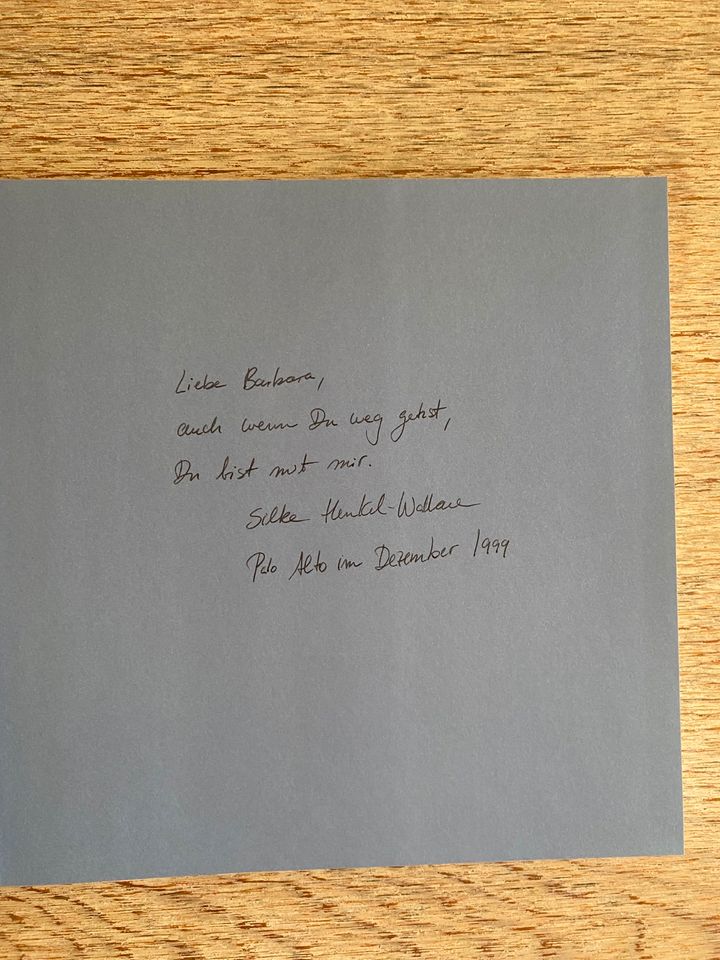 Liebe Barbara,
auch wenn Du weg gehst,
Du bist mit mir.
Silke Henkel-Wallace
Palo Alto im Dezember 1999